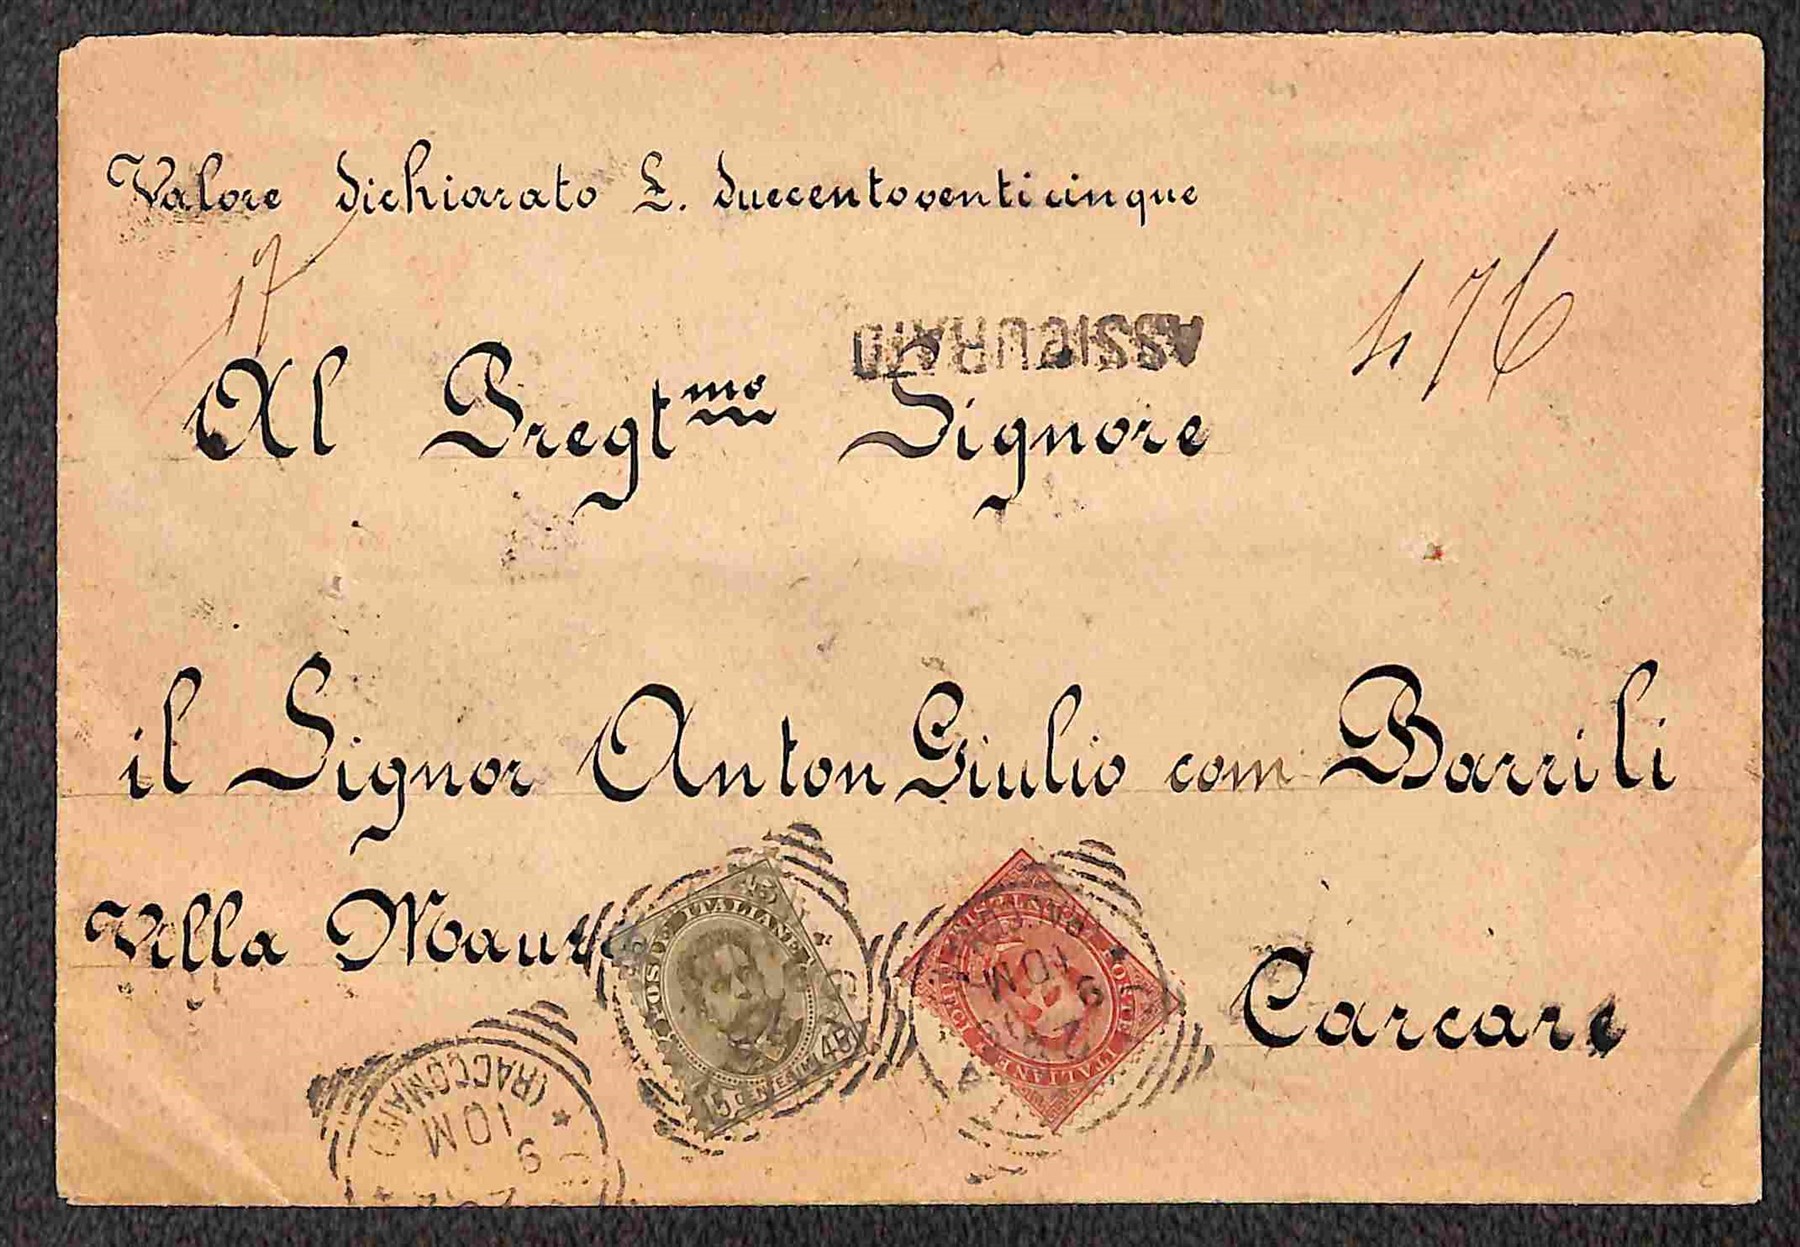 Valore dichiarato L. duecentoventicinque
17
ASSICURATO
476
Al Pregt.mo Signore
il Signor Anton Giulio com Barrili
Villa
Carcare
POSTE ITALIANE
45
CENTESIMI 45
POSTE ITALIANE
10 M
9
(RACCOMAND)
10 M
9